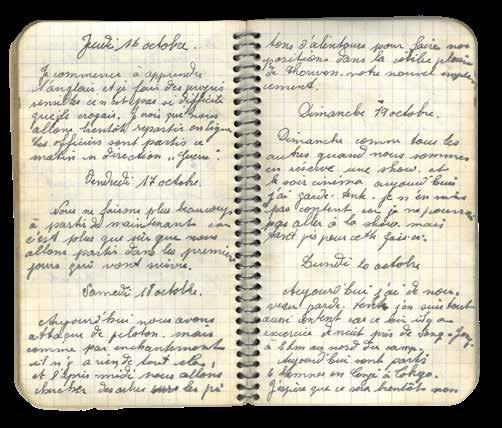 Jeudi 16 octobre.
Je commence à apprendre
l'anglais et je fais des progrès
ce n'est pas si difficile
que je croyais. Je vois que nous
allons bientôt repartir en ligne
Les officiers sont partis ce
matin en direction "guerre".
Vendredi 17 octobre.
Nous ne faisons plus beaucoup
à partir de maintenant car
c'est plus que sûr que nous
allons partir dans les premiers
jours qui vont suivre.
Samedi 18 octobre.
Aujourd'hui nous avons
attaque de peloton. mais
comme par enchantement
il n'y a rien de tout cela,
et l'après midi nous allons
chercher des arbres les pi
tons d'alentours pour faire nos
positions dans la
de notre nouvel empla
cement.
Dimanche 19 octobre.
Dimanche comme tous les
autres quand nous sommes
en réserve une show. et
le soir cinéma aujourd'hui
j'ai garde tente. Je n'en suis
pas content car je ne pourrai
pas aller à la show. mais
tant pis pour cette fois-ci.
Lundi 20 octobre
Aujourd'hui j'ai de nou-
veau garde tente j'en suis tout
aussi content car ce soir il y a
exercice de nuit près de
à 2 km au nord du camp.
Aujourd'hui sont partis
6 hommes en congé à Tokyo.
J'espère que ce sera bientôt mon